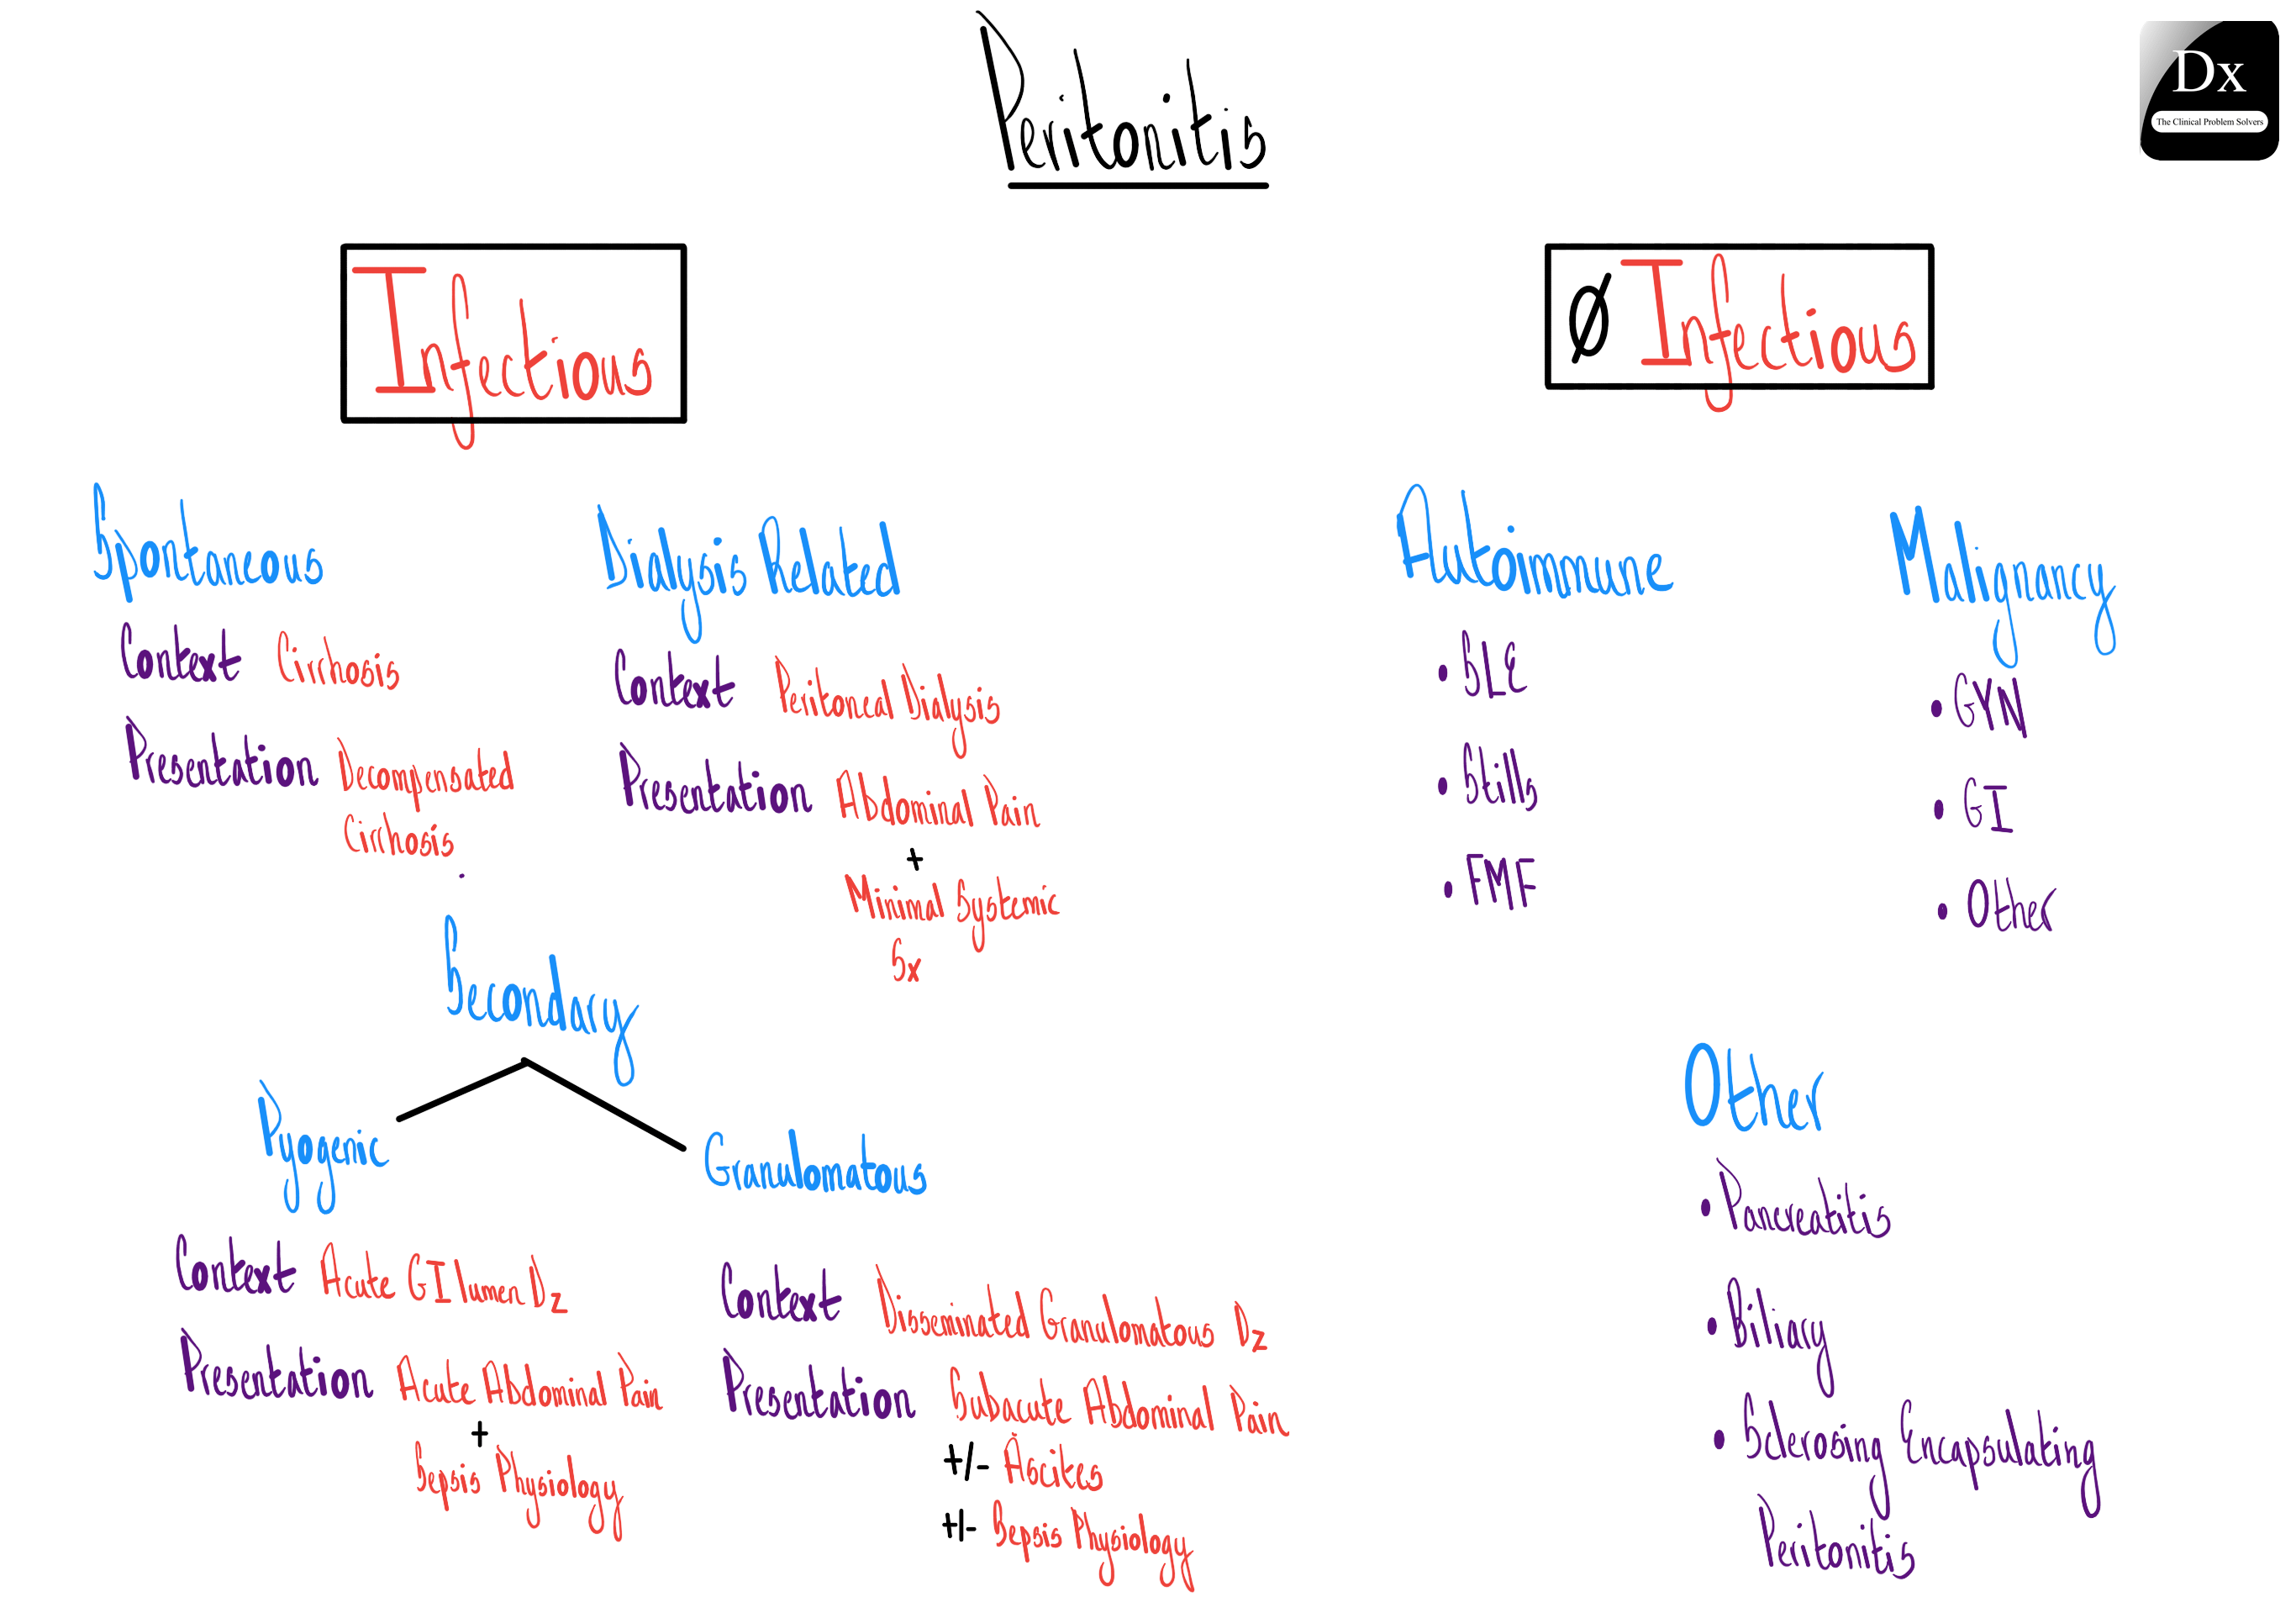 Peritonitis
Dx
The Clinical Problem Solvers
Infectious
Spontaneous
Context Cirrhosis
Presentation Decompensated
Cirrhosis
Dialysis Related
Context Peritoneal Dialysis
Presentation Abdominal Pain
+
Minimal Systemic
Sx
Secondary
Pyogenic
Context Acute GI lumen Dz
Presentation Acute Abdominal Pain
+
Sepsis Physiology
Granulomatous
Context Disseminated Granulomatous Dz
Presentation Subacute Abdominal Pain
+/- Ascites
+/- Sepsis Physiology
Ø Infectious
Autoimmune
• SLE
• Stills
• FMF
Malignancy
• GYN
• GI
• Other
Other
• Pancreatitis
• Biliary
• Sclerosing Encapsulating
Peritonitis